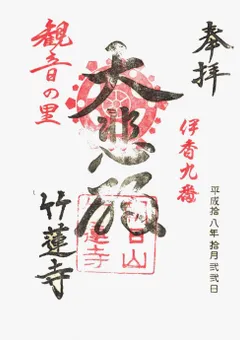 奉拝
伊香九番
平成拾八年拾月弐弐日
大悲殿
観音の里
竹蓮寺